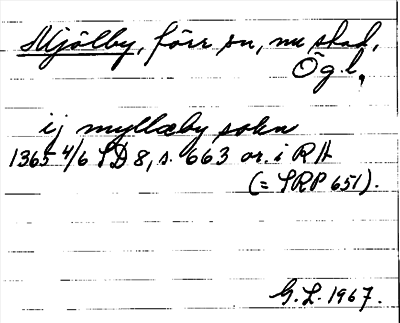 Mjölby, förr sn, nu stad,
Ögl,
ij myllæby sokn
1365 4/6 SD 8, s. 663 or. i RA
(= SRP 651).
G. L. 1967.